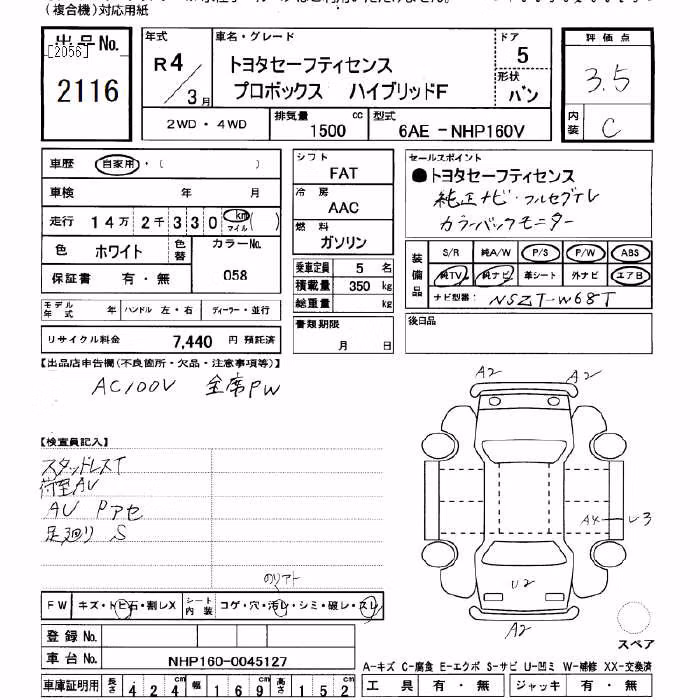 (複合機)対応用紙
出品No.
[2056]
2116
年式
R4/3月
車名・グレード
トヨタセーフティセンス
プロボックス ハイブリッドF
ドア
5
形状
バン
2WD・4WD
排気量 1500 cc
型式 6AE-NHP160V
評価点
3.5
内装
C
車歴 自家用・( )
車検 年 月
走行 14万2千330 km マイル ( )
色 ホワイト 色替
カラーNo. 058
保証書 有・無
モデル年式 年 ハンドル 左・右 ディーラー・並行
リサイクル料金 7,440 円 預託済
シフト
FAT
冷房
AAC
燃料
ガソリン
乗車定員 5 名
積載量 350 kg
総重量 kg
書類期限
月 日
セールスポイント
●トヨタセーフティセンス
純正ナビ・フルセグTV
カラーバックモニター
装備品
S/R 純A/W P/S P/W ABS
純TV 純ナビ 革シート 外ナビ エアB
ナビ型番 NSZT-W68T
後日品
【出品店申告欄(不良箇所・欠品・注意事項等)】
AC100V 全席PW
【検査員記入】
スタッドレスT
荷室AU
AU Pアセ
足廻り S
A2
A2
A4
U3
U2
A2
スペア
のりアト
FW キズ・トビ石・割レX
シート内装 コゲ・穴・汚レ・シミ・破レ・スレ
登録No.
車台No. NHP160-0045127
車庫証明用 長さ 424cm 幅 169cm 高さ 152cm
A-キズ C-腐食 E-エクボ S-サビ U-凹ミ W-補修 XX-交換済
工具 有・無 ジャッキ 有・無